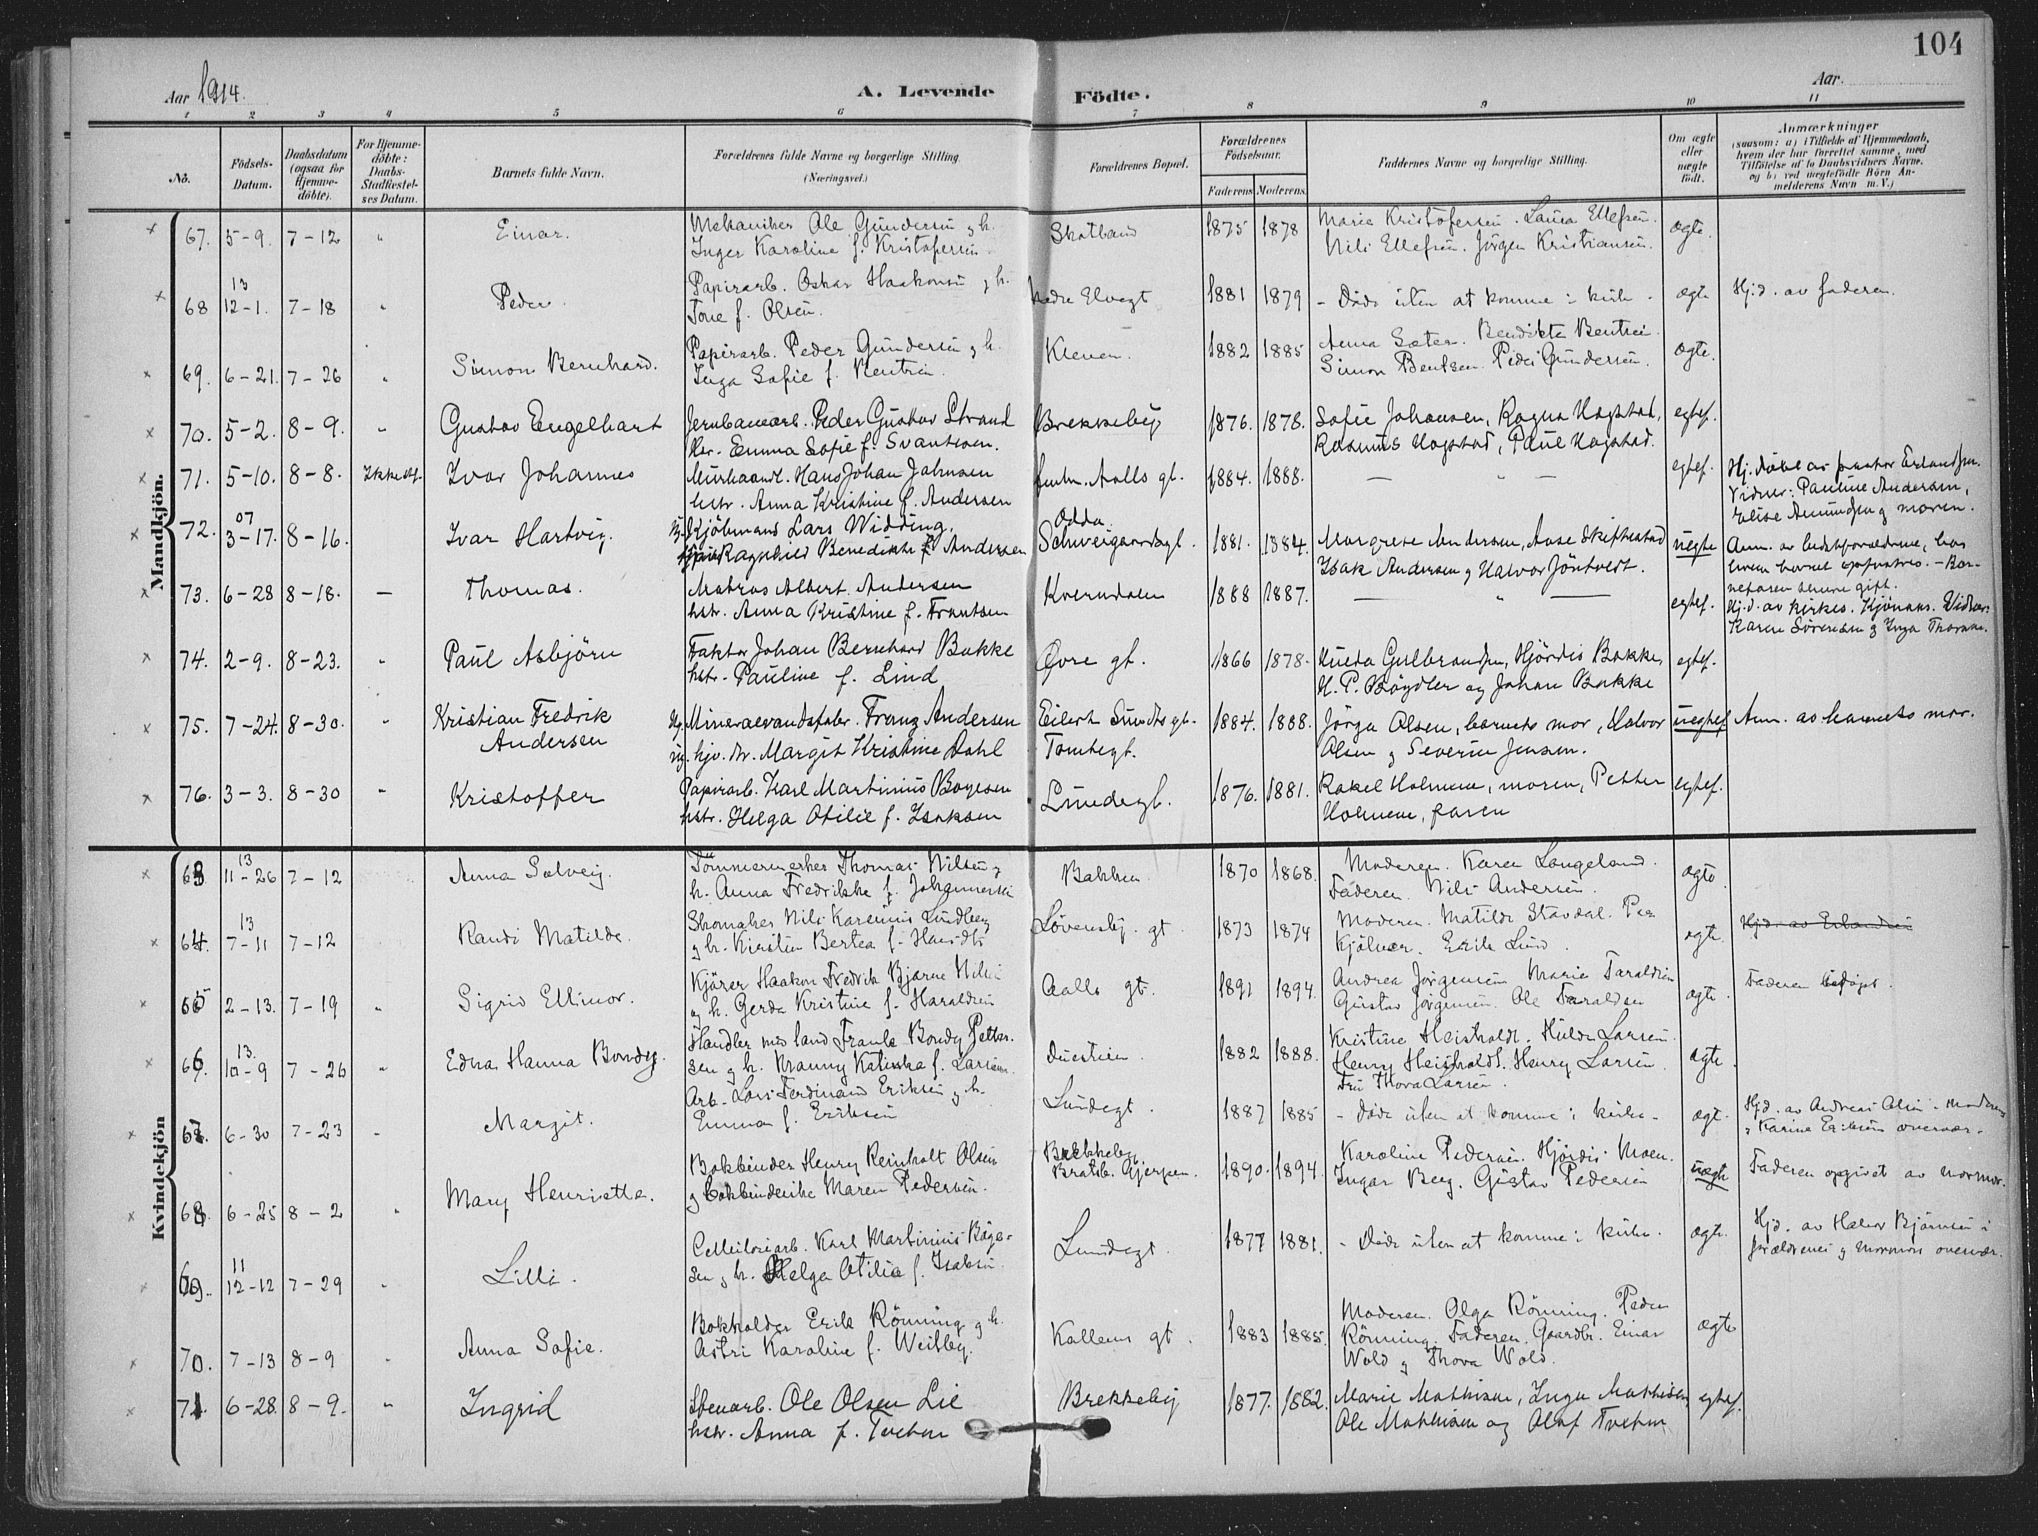 104
Aar 1914.
A. Levende Födte.
Aar
1 2 3 4 5 6 7 8 9 10 11
No.
Födsels-Datum.
Daabsdatum (ogsaa for Hjemmedöbte).
For Hjemmedöbte: Daabs-Stadfæstelses Datum.
Barnets fulde Navn.
Forældrenes fulde Navne og borgerlige Stilling.
(Næringsvei.)
Forældrenes Bopæl.
Forældrenes Födselsaar.
Faderens. Moderens.
Faddernes Navne og borgerlige Stilling.
Om ægte eller uægte födt.
Anmærkninger
(saasom: a) i Tilfælde af Hjemmedaab, hvem der har forrettet samme, med Tilföielse af to Daabsvidners Navne. og b) ved uægtefödte Börn Anmelderens Navn m. V.)
Mandkjön.
67. 5-9. 7-12 " Einar. Mekaniker Ole Gundersen og h. Skotland 1875 1878 Marie Kristofersen. Laura Ellefsen. ægte.
Inger Karoline f. Kristofersen. Nils Ellefsen. Jörgen Kristiansen.
68 13 12-1. 7-18 " Peder. Papirarb. Oskar Haakonsen og h. Nedre Elvegt 1881 1879 - Döde uten at komme i kirke - ægte Hj.d. av faderen.
Tone f. Olsen.
69. 6-21. 7-26 " Simon Bernhard. Papirarb. Peder Gundersen og h. Kleven. 1882 1885 Anna Sæter. Bendikte Bentsen. ægte.
Inga Sofie f. Bentsen. Simon Bentsen. Peder Gundersen.
70. 5-2. 8-9. " Gustav Engelhart Jernbanearb. Peder Gustav Strand Brekkeby 1876. 1878. Sofie Johansen, Ragna Hogstad, egtef.
Hstr. Emma Sofie f. Svantsen. Rasmus Hogstad, Paul Hogstad.
71. 5-10. 8-8. Ikke stf. Ivar Johannes Murhaandl. Hans Johan Jahnsen Aalls gt. 1884. 1888. — " — egtef. Hj. döbt av pastor Erlandsen.
hstr. Anna Kristine f. Andersen Vidner: Pauline Andersen, Elise Amundsen og moren.
72. 07 3-17. 8-16. Ivar Hartvig. Kjöbmand Lars Widding, Odda 1881. 1884. Margrete Andersen, Aase Skifterstad uegte
Ragnhild Benedikte f. Andersen Schweigaardsgt. Isak Andersen og Halvor Jöntvedt.
73. 6-28 8-18. — Thomas. Matros Albert Andersen Kverndalen 1888 1887. — " — egtef. Hj.d. av kirkes. Kjönaas. Vidner:
hstr. Anna Kristine f. Frantsen Karen Sörensen og Inga Thomas.
74. 2-9. 8-23. " Paul Asbjörn Faktor Johan Bernhard Bakke Øvre gt. 1866 1878. Hulda Gulbrandsen, Hjördis Bakke, egtef.
hstr. Pauline f. Lind H. P. Böydler og Johan Bakke
75. 7-24. 8-30. " Kristian Fredrik Andersen Ug. Mineralvandsfabr. Franz Andersen Eilert Sundts gt. 1884. 1888. Jörga Olsen, barnets mor, Halvor uegtef. Anm. av barnets mor.
ug. hjv. dr. Margit Kristine Dahl Tomtegt. Olsen og Severin Jensen.
76. 3-3. 8-30 " Kristoffer Papirarb. Karl Martinius Bøgesen Lundegt. 1876. 1881. Rakel Holmene, moren, Petter egtef.
hstr. Helga Otilie f. Isaksen Holmene, faren
Kvindekjön
63 13 11-26 7-12 Anna Solveig. Tömmermerker Thomas Nilsen og Bakken 1870 1868. Moderen. Karen Langeland. ægte.
h. Anna Fredrikke f. Johannesen Faderen. Nils Andersen.
64. 13 7-11 7-12 Randi Matilde. Skomaker Nils Karenius Lundberg Lövenskj. gt. 1873 1874 Moderen. Matilde Stavdal. Per ægte. Hj.d. av Erlandsen
og h. Kirsten Bertea f. Kjölner. Erik Lund.
65 2-13. 7-19 " Sigrid Ellinor. Kjörer Haakon Fredrik Bjarne Nilsen Aalls gt. 1891 1894. Andrea Jörgensen Marie Taraldsen ægte.
og h. Gerda Kristine f. Haraldsen Gustav Jörgensen. Ole Taraldsen
66. 13. 10-9 7-26 " Edna Hanna Bondy. Handler med land Frank Bondy Pettersen og h. 1882 1888. Kristine Heistholt. Hulda Larsen. ægte.
f. Larsen. Henry Heistholt. Henry Larsen. Fru Thora Larsen.
67. 6-30 7-23 " Margit. Arb. Lars Ferdinand Eriksen og h. Lundegt. 1887 1885 - Döde uten at komme i kirke - ægte. Hj.d. av Andreas Olsen. Moderen
Emma f. Eriksen og Karine Eriksen overvær.
68. 6-25 8-2 " Mary Henriette. Bokbinder Henry Reinholt Olsen Brekkeby 1890. 1894. Karoline Pedersen. Hjördis Moen. uægte Faderen opgivet av mormor.
og bokbinderske Maren Pedersen. Bratsb. Gjerpen. Ingar Berg. Gustav Pedersen
69. 11 12-12 7-29 " Lilli. Celluloiarb. Karl Martinius Bögesen og h. Helga Otilia f. Isaksen. Lundegt. 1877 1881. - Döde uten at komme i kirke. ægte. Hj.d. av Halvor Björnsen i
forældrenes og mormors overvær.
70. 7-13 8-9 " Anna Sofie. Bokholder Erik Rönning og h. Kallems gt. 1883 1885. Moderen. Olga Rönning. Peder ægte
Astri Karoline f. Weitby. Rönning. Faderen. Gaardbr. Einar Wold og Thora Wold.
71 6-28. 8-9. " Ingrid Stenarb. Ole Olsen Lie Brekkeby 1877. 1882. Marie Mathisen, Inga Mathisen, egtef.
hstr. Anna f. Tveten Ole Mathisen og Olaf Tveten